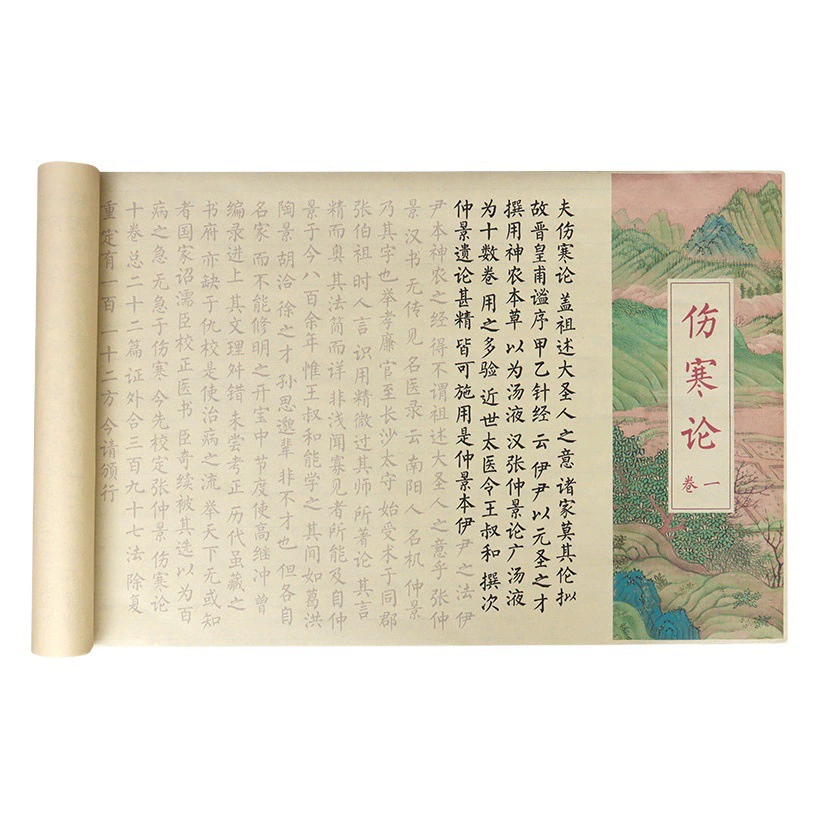 伤寒论
卷一
夫伤寒论 盖祖述大圣人之意 诸家莫其伦拟
故晋皇甫谧序 甲乙针经云 伊尹以元圣之才
撰用神农本草 以为汤液 汉张仲景论广汤液
为十数卷 用之多验 近世太医令王叔和 撰次
仲景遗论甚精 皆可施用是仲景本伊尹之法伊
尹本神农之经 得不谓祖述大圣人之意乎 张仲
景 汉书无传 见名医录云 南阳人 名机 仲景
乃其字也 举孝廉 官至长沙太守 始受术于同郡
张伯祖 时人言 识用精微过其师 所著论 其言
精而奥 其法简而详 非浅闻寡见者所能及自仲
景于今八百余年 惟王叔和能学之 其间如葛洪
陶景 胡洽 徐之才 孙思邈辈 非不才也 但各自
名家 而不能修明之 开宝中 节度使高继冲 曾
编录进上 其文理舛错 未尝考正 历代虽藏之
书府 亦缺于仇校 是使治病之流 举天下无或知
者国家诏濡臣校正医书 臣奇续被其选 以为百
病之急 无急于伤寒 今先校定张仲景 伤寒论
十卷 总二十二篇 证外合三百九十七法 除复
重 定有一百一十二方 今请颁行